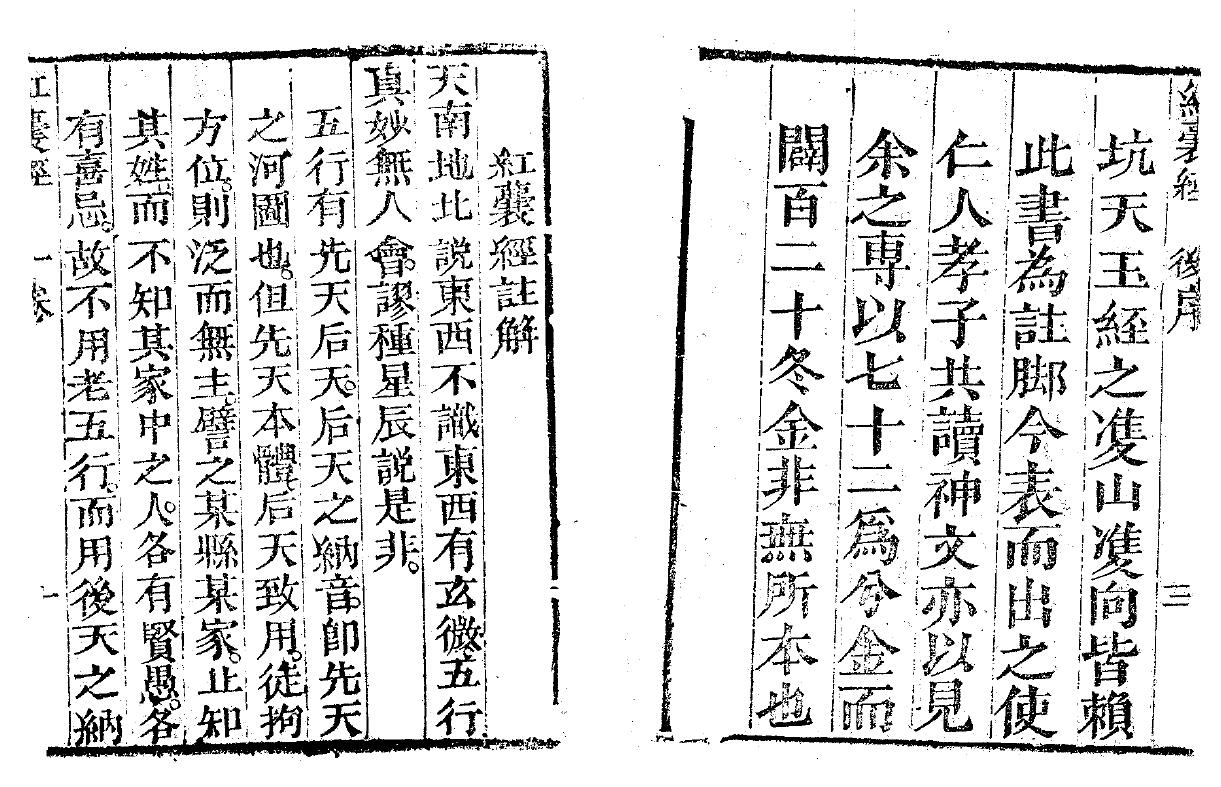 紅囊經 後序 三
坑天玉經之凖山凖向皆賴
此書為註脚今表而出之使
仁人孝子共讀神文亦以見
余之專以七十二為分金而
闢百二十冬金非無所本也
紅囊經註解
天南地北說東西不識東西有玄微五行
真妙無人會謬種星辰說是非
五行有先天后天后天之納音卽先天
之河圖也但先天本體后天致用徒拘
方位則泛而無主譬之某縣某家止知
其姓而不知其家中之人各有賢愚各
有喜忌故不用老五行而用後天之納
紅囊經 一卷 一